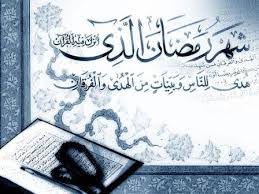 شَهْرُ رَمَضَانَ الَّذِي
أُنْزِلَ فِيهِ الْقُرْآنُ
هُدًى لِلنَّاسِ وَبَيِّنَاتٍ مِنَ الْهُدَى وَالْفُرْقَانِ